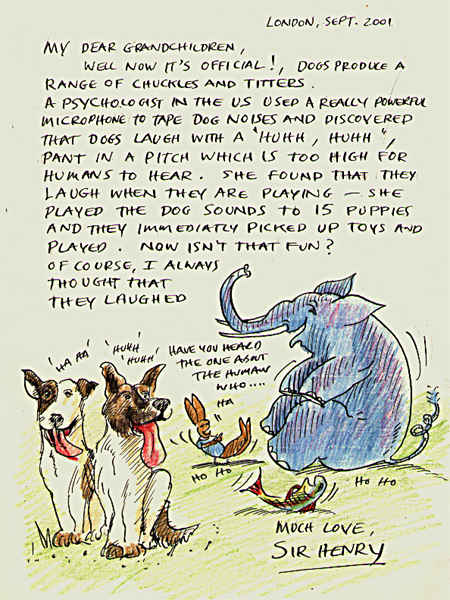 LONDON, SEPT. 2001
MY DEAR GRANDCHILDREN,
WELL NOW IT'S OFFICIAL!, DOGS PRODUCE A
RANGE OF CHUCKLES AND TITTERS.
A PSYCHOLOGIST IN THE US USED A REALLY POWERFUL
MICROPHONE TO TAPE DOG NOISES AND DISCOVERED
THAT DOGS LAUGH WITH A "HUHH, HUHH",
PANT IN A PITCH WHICH IS TOO HIGH FOR
HUMANS TO HEAR. SHE FOUND THAT THEY
LAUGH WHEN THEY ARE PLAYING – SHE
PLAYED THE DOG SOUNDS TO 15 PUPPIES
AND THEY IMMEDIATLY PICKED UP TOYS AND
PLAYED. NOW ISN'T THAT FUN?
OF COURSE, I ALWAYS
THOUGHT THAT
THEY LAUGHED
'HA HA'
'HUHH
'HUHH'
HAVE YOU HEARD
THE ONE ABOUT
THE HUMAN
WHO....
HA
HO HO
HO HO
MUCH LOVE,
SIR HENRY